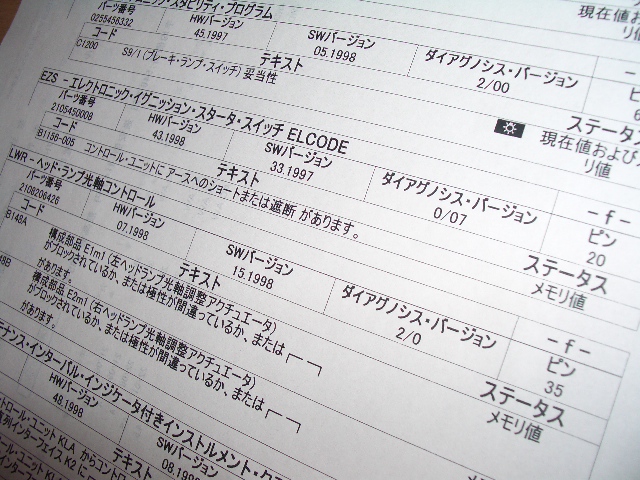 ニック・スタビリティ・プログラム
現在値お
リ値
0255456332 HWバージョン SWバージョン ダイアグノシス・バージョン
コード 45.1997 05.1998 2/00
C1200 テキスト
S9/1 (ブレーキ・ランプ・スイッチ) 妥当性
ステータス
現在値および
リ値
EZS - エレクトロニック・イグニッション・スタータ・スイッチ ELCODE
パーツ番号 HWバージョン SWバージョン ダイアグノシス・バージョン - f -
2105450008 43.1998 33.1997 0/07 ピン
20
コード テキスト ステータス
B1156-005 コントロール・ユニットに アースへのショートまたは遮断 があります。 メモリ値
LWR - ヘッド・ランプ光軸コントロール
パーツ番号 HWバージョン SWバージョン ダイアグノシス・バージョン - f -
2108206426 07.1998 15.1998 2/0 ピン
35
コード テキスト ステータス
B148A 構成部品 E1m1 (左ヘッドランプ光軸調整アクチュエータ) メモリ値
がブロックされているか、または極性が間違っているか、または
があります。
構成部品 E2m1 (右ヘッドランプ光軸調整アクチュエータ) ステータス
がブロックされているか、または極性が間違っているか、または メモリ値
があります。
テナンス・インターバル・インジケータ付きインストルメント・ク
HWバージョン SWバージョン
48.1998 08.199
テキスト
ントロール・ユニット KLA からコント